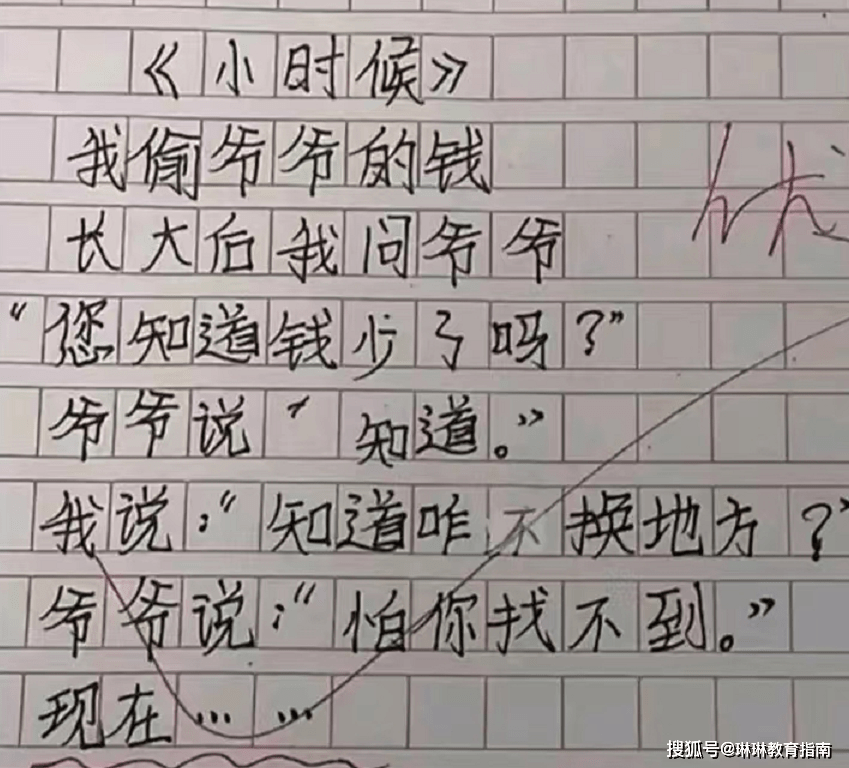 《小时候》
我偷爷爷的钱
长大后我问爷爷
“您知道钱少了吗？”
爷爷说“知道。”
我说：“知道咋不换地方？”
爷爷说：“怕你找不到。”
现在……
优
搜狐号@琳琳教育指南